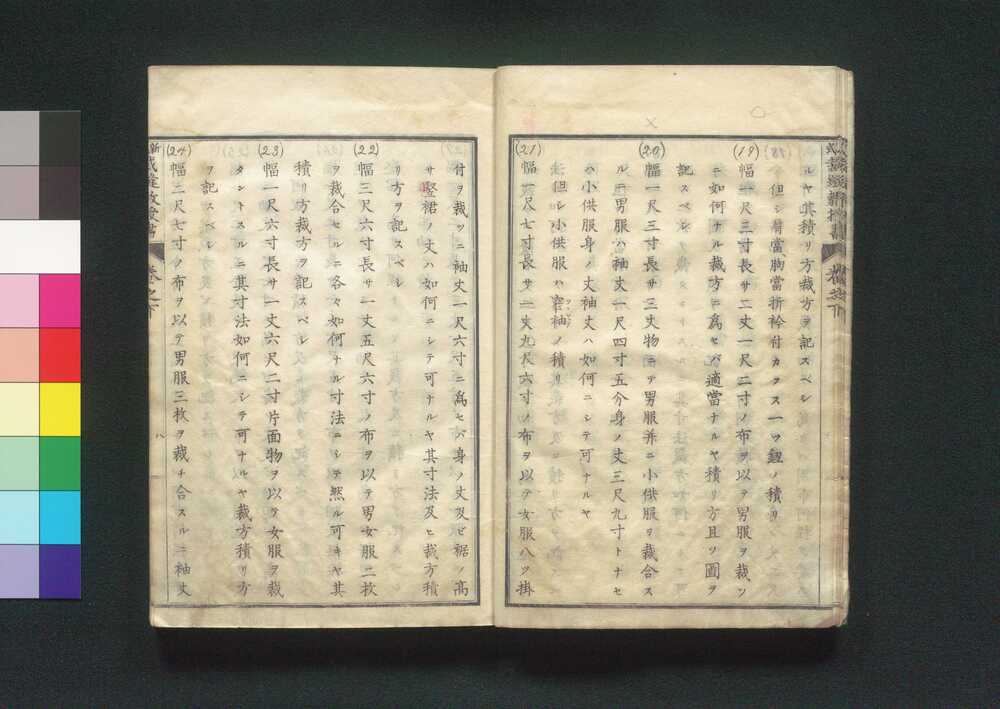 ルヤ其積リ方裁方ヲ記スベシ
(18)
但シ肩當、胸當折衿付カクス一ツ鈕ノ積リ
(19)
幅一尺三寸長サ二丈一尺二寸ノ布ヲ以テ男服ヲ裁ツン
ニ如何ナル裁方ニ為セバ適當ナルヤ積リ方且ツ圖ヲ
記スベシ
(20)
幅一尺三寸長サ三丈物ニテ男服并ニ小供服ヲ裁合ス
ルニ男服ハ袖丈一尺四寸五分身ノ丈三尺九寸トナセ
ハ小供服身ノ丈袖丈ハ如何ニシテ可ナルヤ
但シ小供服ハ窄袖ノ積リ
(21)
幅一尺七寸長サ一丈九尺六寸ノ布ヲ以テ女服八ツ掛
付ヲ裁ツニ袖丈一尺六寸ニ為セハ身ノ丈及ビ裾ノ高
サ竪裾ノ丈ハ如何ニシテ可ナルヤ其寸法及ヒ裁方積
リ方ヲ記スベシ
(22)
幅三尺六寸長サ一丈五尺六寸ノ布ヲ以テ男女服二枚
ヲ裁合セルニ各々如何ナル寸法ニシテ然ル可キヤ其
積リ方裁方ヲ記スベシ
(23)
幅一尺六寸長サ一丈六尺二寸片面物ヲ以テ女服ヲ裁
タントスルニ其寸法如何ニシテ可ナルヤ裁方積リ方
ヲ記スベシ
(24)
幅二尺七寸ノ布ヲ以テ男服三枚ヲ裁チ合スルニ袖丈
八